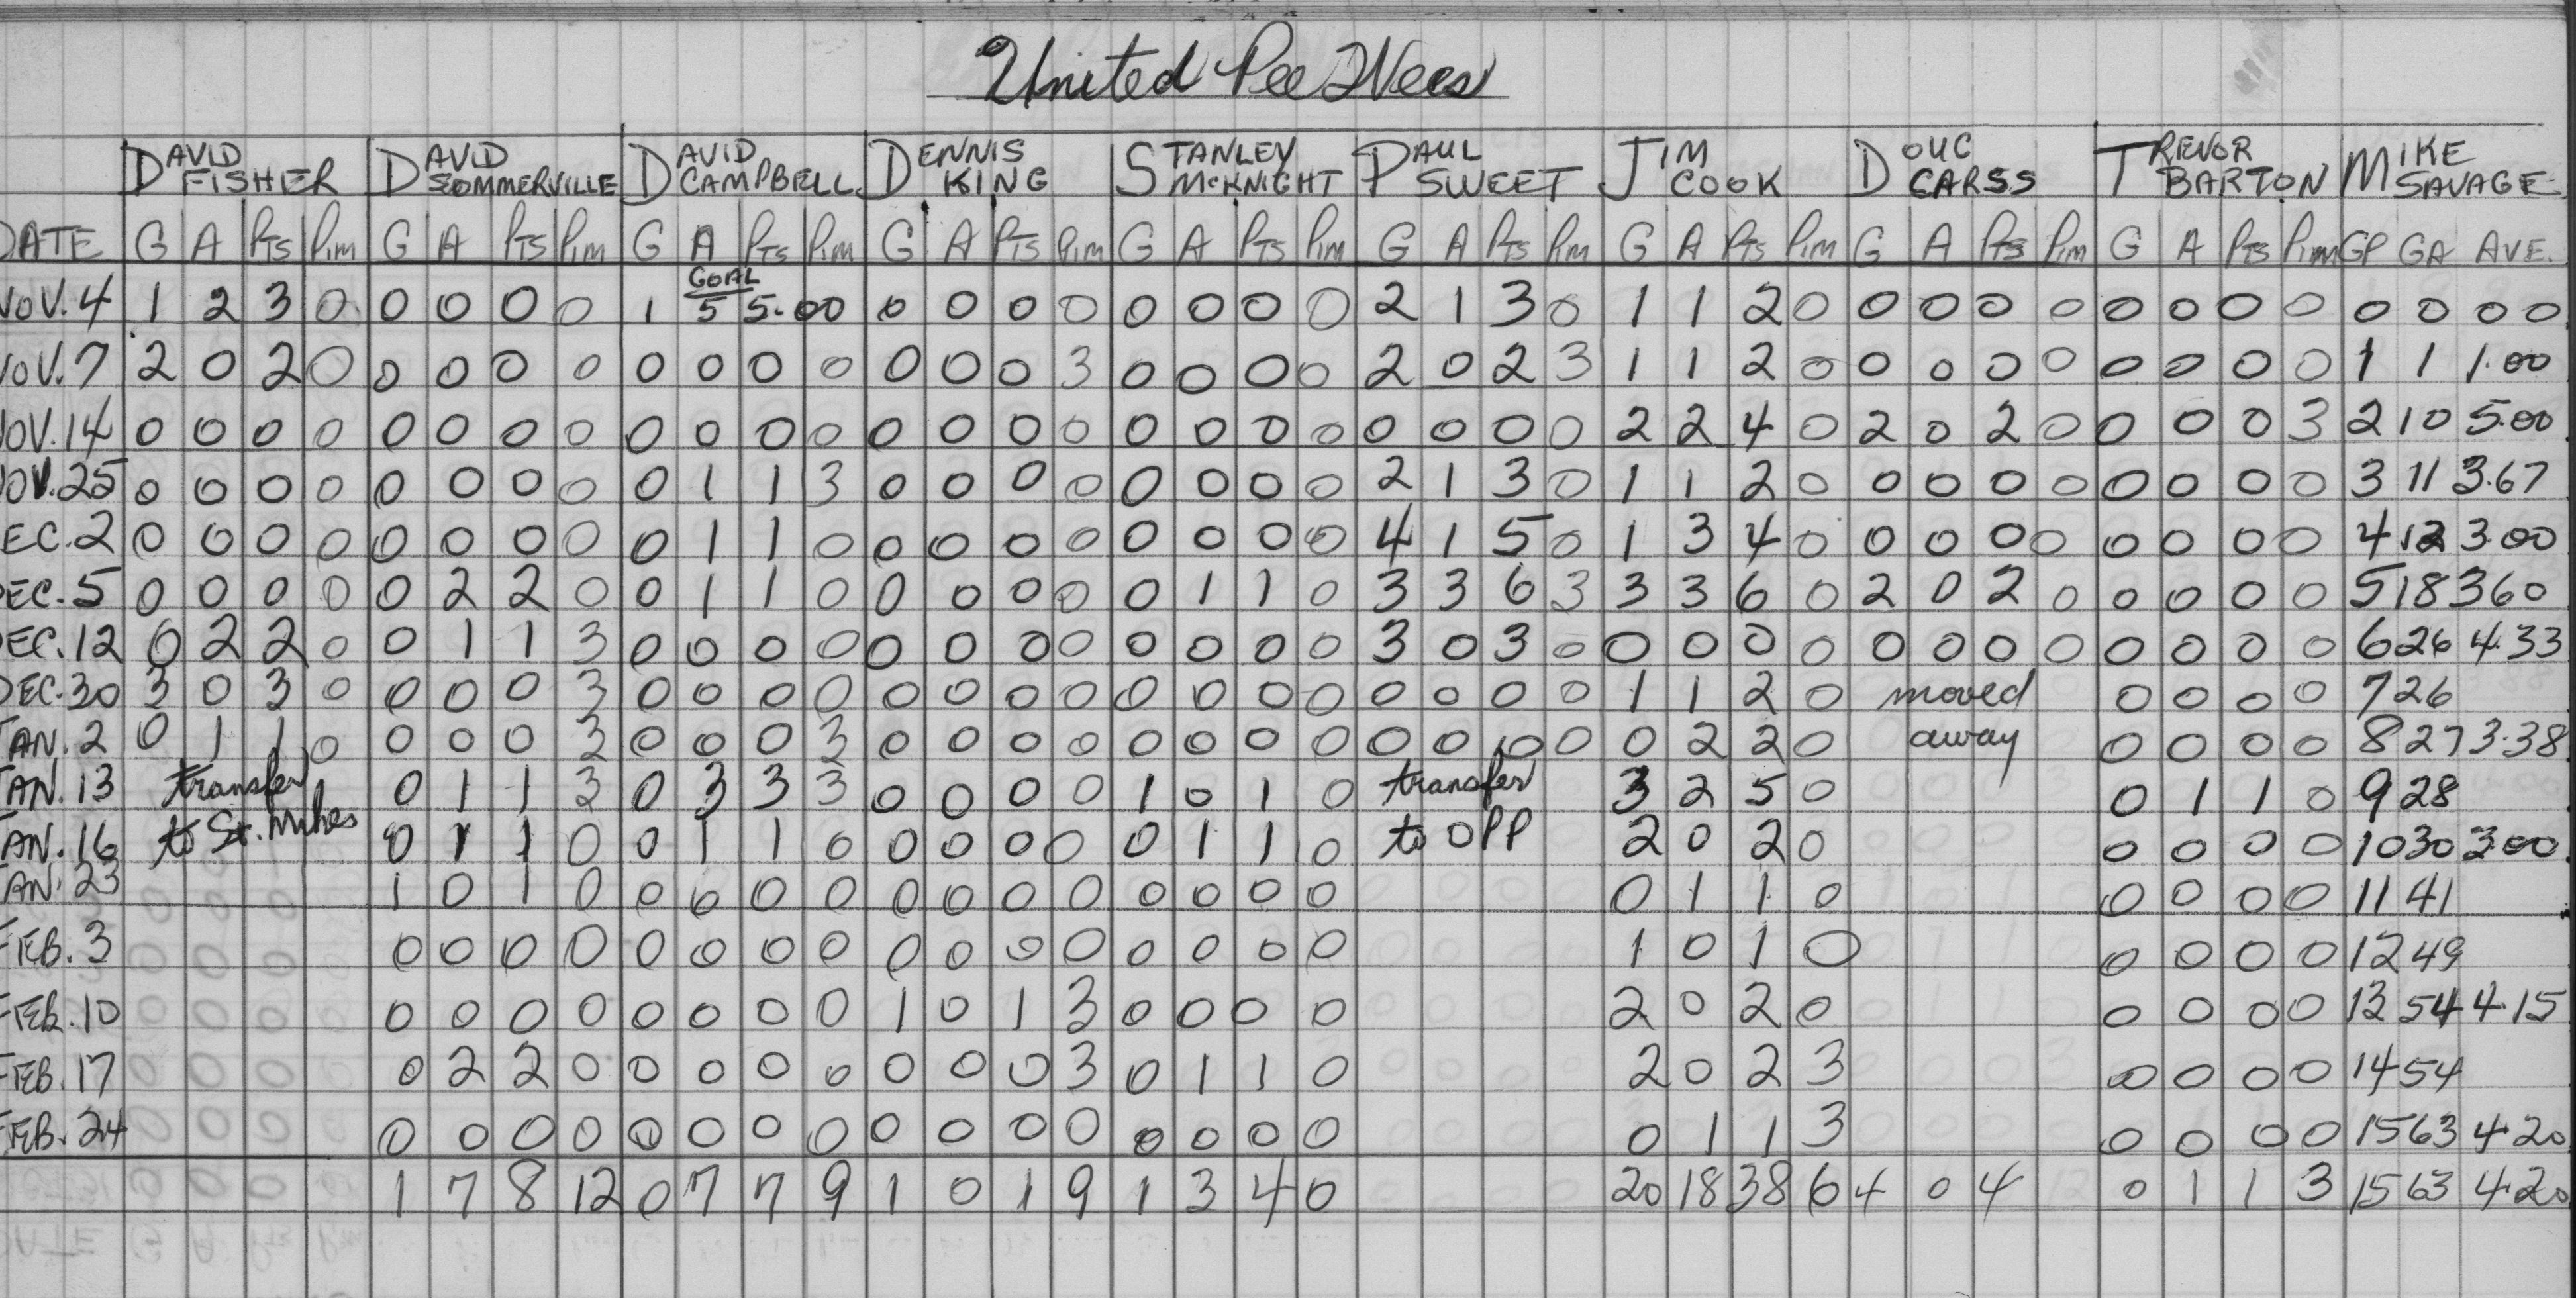 United Pee Wees
DAVID FISHER DAVID SOMMERVILLE DAVID CAMPBELL DENNIS KING STANLEY McKNIGHT PAUL SWEET JIM COOK DOUG CARSS TREVOR BARTON MIKE SAVAGE
DATE G A PTS PIM G A PTS PIM G A PTS PIM G A PTS PIM G A PTS PIM G A PTS PIM G A PTS PIM G A PTS PIM G A PTS PIM GP GA AVE.
GOAL
NOV. 4 1 2 3 0 0 0 0 0 1 5 5.00 0 0 0 0 0 0 0 0 2 1 3 0 1 1 2 0 0 0 0 0 0 0 0 0 0 0 0 0
NOV. 7 2 0 2 0 0 0 0 0 0 0 0 0 0 0 0 3 0 0 0 0 2 0 2 3 1 1 2 0 0 0 0 0 0 0 0 0 1 1 1.00
NOV. 14 0 0 0 0 0 0 0 0 0 0 0 0 0 0 0 0 0 0 0 0 0 0 0 0 2 2 4 0 2 0 2 0 0 0 0 3 2 10 5.00
NOV. 25 0 0 0 0 0 0 0 0 0 1 1 3 0 0 0 0 0 0 0 0 2 1 3 0 1 1 2 0 0 0 0 0 0 0 0 0 3 11 3.67
DEC. 2 0 0 0 0 0 0 0 0 0 1 1 0 0 0 0 0 0 0 0 0 4 1 5 0 1 3 4 0 0 0 0 0 0 0 0 0 4 12 3.00
DEC. 5 0 0 0 0 0 2 2 0 0 1 1 0 0 0 0 0 0 1 1 0 3 3 6 3 3 3 6 0 2 0 2 0 0 0 0 0 5 18 3 60
DEC. 12 0 2 2 0 0 1 1 3 0 0 0 0 0 0 0 0 0 0 0 0 3 0 3 0 0 0 0 0 0 0 0 0 0 0 0 0 6 26 4.33
DEC. 30 3 0 3 0 0 0 0 3 0 0 0 0 0 0 0 0 0 0 0 0 0 0 0 0 1 1 2 0 moved 0 0 0 0 7 26
JAN. 2 0 1 1 0 0 0 0 3 0 0 0 3 0 0 0 0 0 0 0 0 0 0 0 0 0 2 2 0 away 0 0 0 0 8 27 3.38
JAN. 13 transfer 0 1 1 3 0 3 3 3 0 0 0 0 1 0 1 0 transfer 3 2 5 0 0 1 1 0 9 28
JAN. 16 to St. Mikes 0 1 1 0 0 1 1 0 0 0 0 0 0 1 1 0 to OPP 2 0 2 0 0 0 0 0 10 30 3.00
JAN. 23 1 0 1 0 0 0 0 0 0 0 0 0 0 0 0 0 0 1 1 0 0 0 0 0 11 41
FEB. 3 0 0 0 0 0 0 0 0 0 0 0 0 0 0 0 0 1 0 1 0 0 0 0 0 12 49
FEB. 10 0 0 0 0 0 0 0 0 1 0 1 3 0 0 0 0 2 0 2 0 0 0 0 0 13 54 4.15
FEB. 17 0 2 2 0 0 0 0 0 0 0 0 3 0 1 1 0 2 0 2 3 0 0 0 0 14 54
FEB. 24 0 0 0 0 0 0 0 0 0 0 0 0 0 0 0 0 0 1 1 3 0 0 0 0 15 63 4.20
1 7 8 12 0 7 7 9 1 0 1 9 1 3 4 0 20 18 38 6 4 0 4 0 1 1 3 15 63 4.20